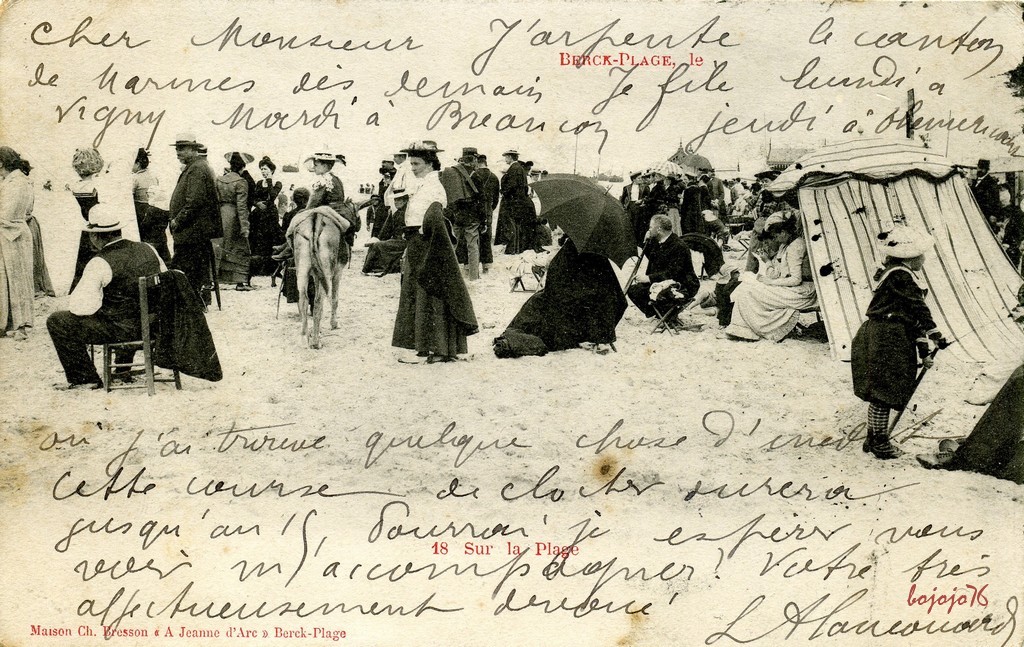 Cher Monsieur J'arpente le canton
BERCK-PLAGE, le
de Marines dès demain Je file lundi à
Vigny Mardi à Breançon jeudi à
où j'ai trouvé quelque chose d'inédit
Cette course de clocher durera
jusqu'au 15, Pourrai je espérer vous
18 Sur la Plage
voir m'accompagner? Votre très
affectueusement dévoué
bojojo76
Maison Ch. Bresson « A Jeanne d'Arc » Berck-Plage
L